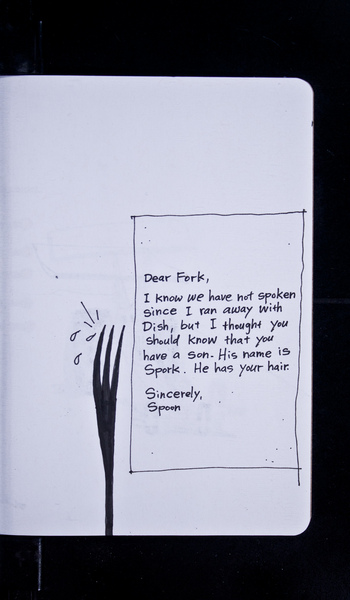 Dear Fork,
I know we have not spoken
since I ran away with
Dish, but I thought you
should know that you
have a son. His name is
Spork. He has your hair.
Sincerely,
Spoon